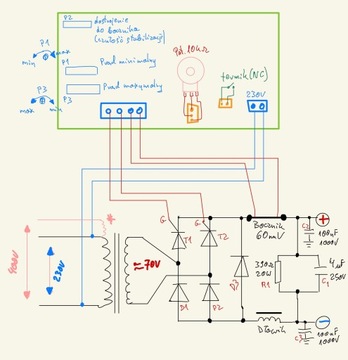 P2
dostrojenie
do bocznika
(czułość stabilizacji)
Pot. 10kΩ
P1
max
min
P1
Prąd minimalny
termik (NC)
230V
P3
max
min
P3
Prąd maxymalny
400V
230V
≈70V
G
T1
G
T2
D1
D2
D3
Bocznik
60mV
C2
100nF
1000V
330Ω
20W
R1
4µF
250V
C1
Dławik
C3
100nF
1000V